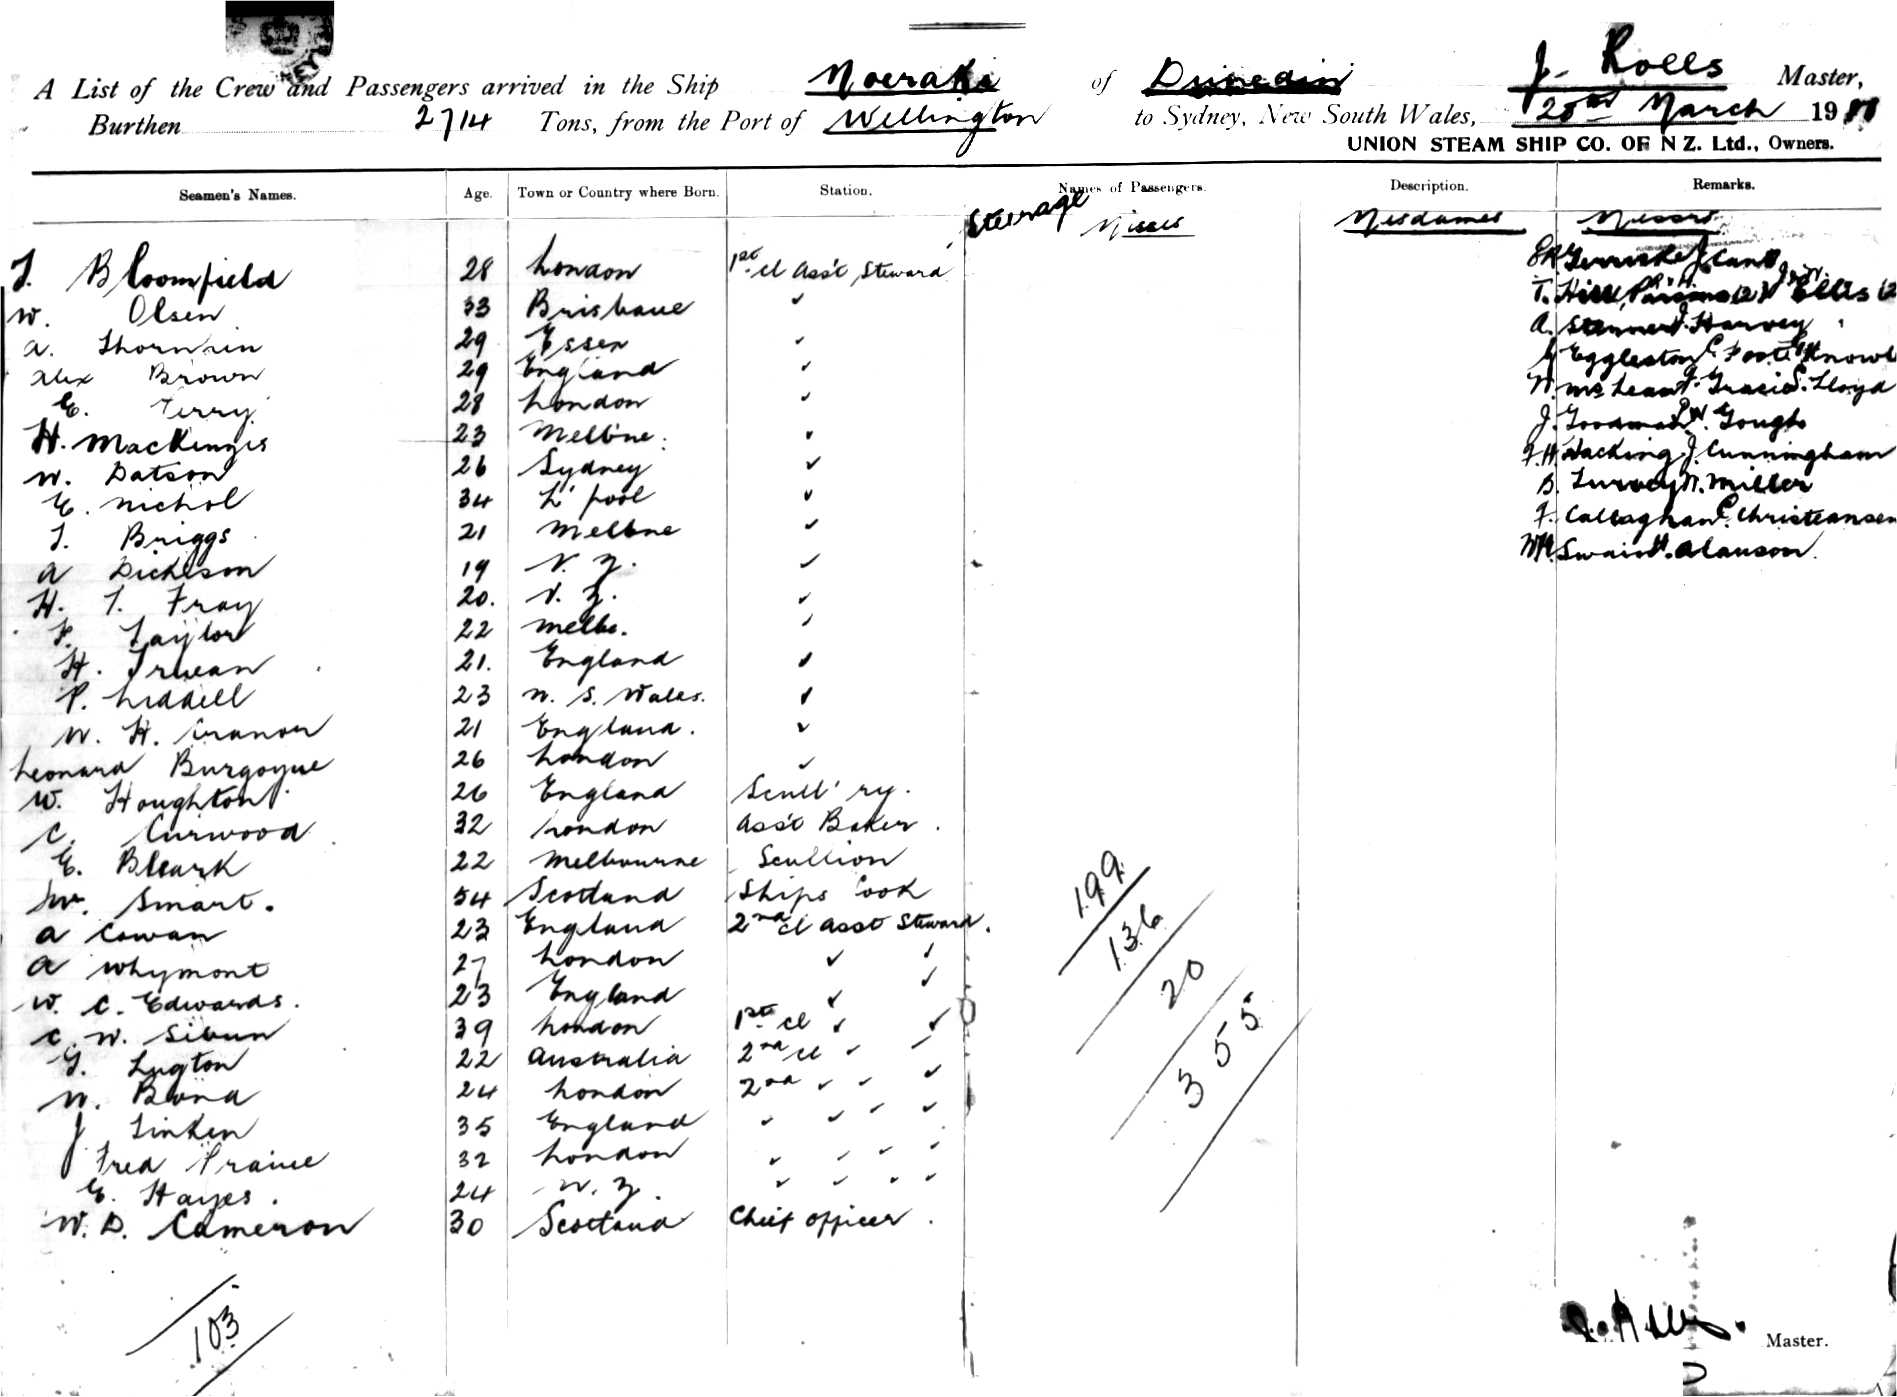 A List of the Crew and Passengers arrived in the Ship Moeraki of Dunedin J. Rolls Master,
Burthen 2714 Tons, from the Port of Wellington to Sydney, New South Wales, March 19
UNION STEAM SHIP CO. OF N Z. Ltd., Owners.
Seamen's Names. Age. Town or Country where Born. Station. Names of Passengers. Description. Remarks.
Steerage Misses Mesdames Messrs
T. Bloomfield 28 London 1st cl Ass't Steward
W. Olsen 33 Brisbane ✓
A. 29 Essex ✓
Alex Brown 29 England ✓
E. Terry 28 London ✓
H. MacKenzie 23 Melb'ne. ✓
W. Datson 26 Sydney ✓
E. Nichol 34 L'pool ✓
T. Briggs 21 Melbne ✓
A Dickison 19 N. Z. ✓
H. T. Fray 20. N. Z. ✓
F. Taylor 22 Melb. ✓
H. Truean 21. England ✓
P. Liddell 23 N. S. Wales. ✓
W. H. 21 England. ✓
Leonard Burgoyne 26 London ✓
W. Houghton 26 England Scull'ry.
C. Curwood 32 London Ass't Baker.
E. Bleark 22 Melbourne Scullion
W. Smart. 54 Scotland Ships Cook
A Cowan 23 England 2nd cl Asst Steward.
A Whymont 27 London ✓ ✓
W. C. Edwards. 23 England ✓ ✓
C. W. Sibun 39 London 1st cl ✓ ✓
G. Lugton 22 Australia 2nd cl ✓ ✓
W. Bond 24 London 2nd ✓ ✓ ✓
J Linken 35 England ✓ ✓ ✓ ✓
Fred Praine 32 London ✓ ✓ ✓ ✓
E. Hayes. 24 N. Z. ✓ ✓ ✓ ✓
W. D. Cameron 30 Scotland Chief Officer.
J. Cant
T. Hill, Parsons (2) Ellis (2
A. Stenner J. Harvey
G Eggleston C Foote
N. McLean J. Gracie S. Lloyd
J. Goodman W. Gough
F.H. Hacking J. Cunningham
B. Turvey N. Miller
F. Callaghan C. Christeansen
Swain H. Alanson.
199
136
20
355
103
Master.